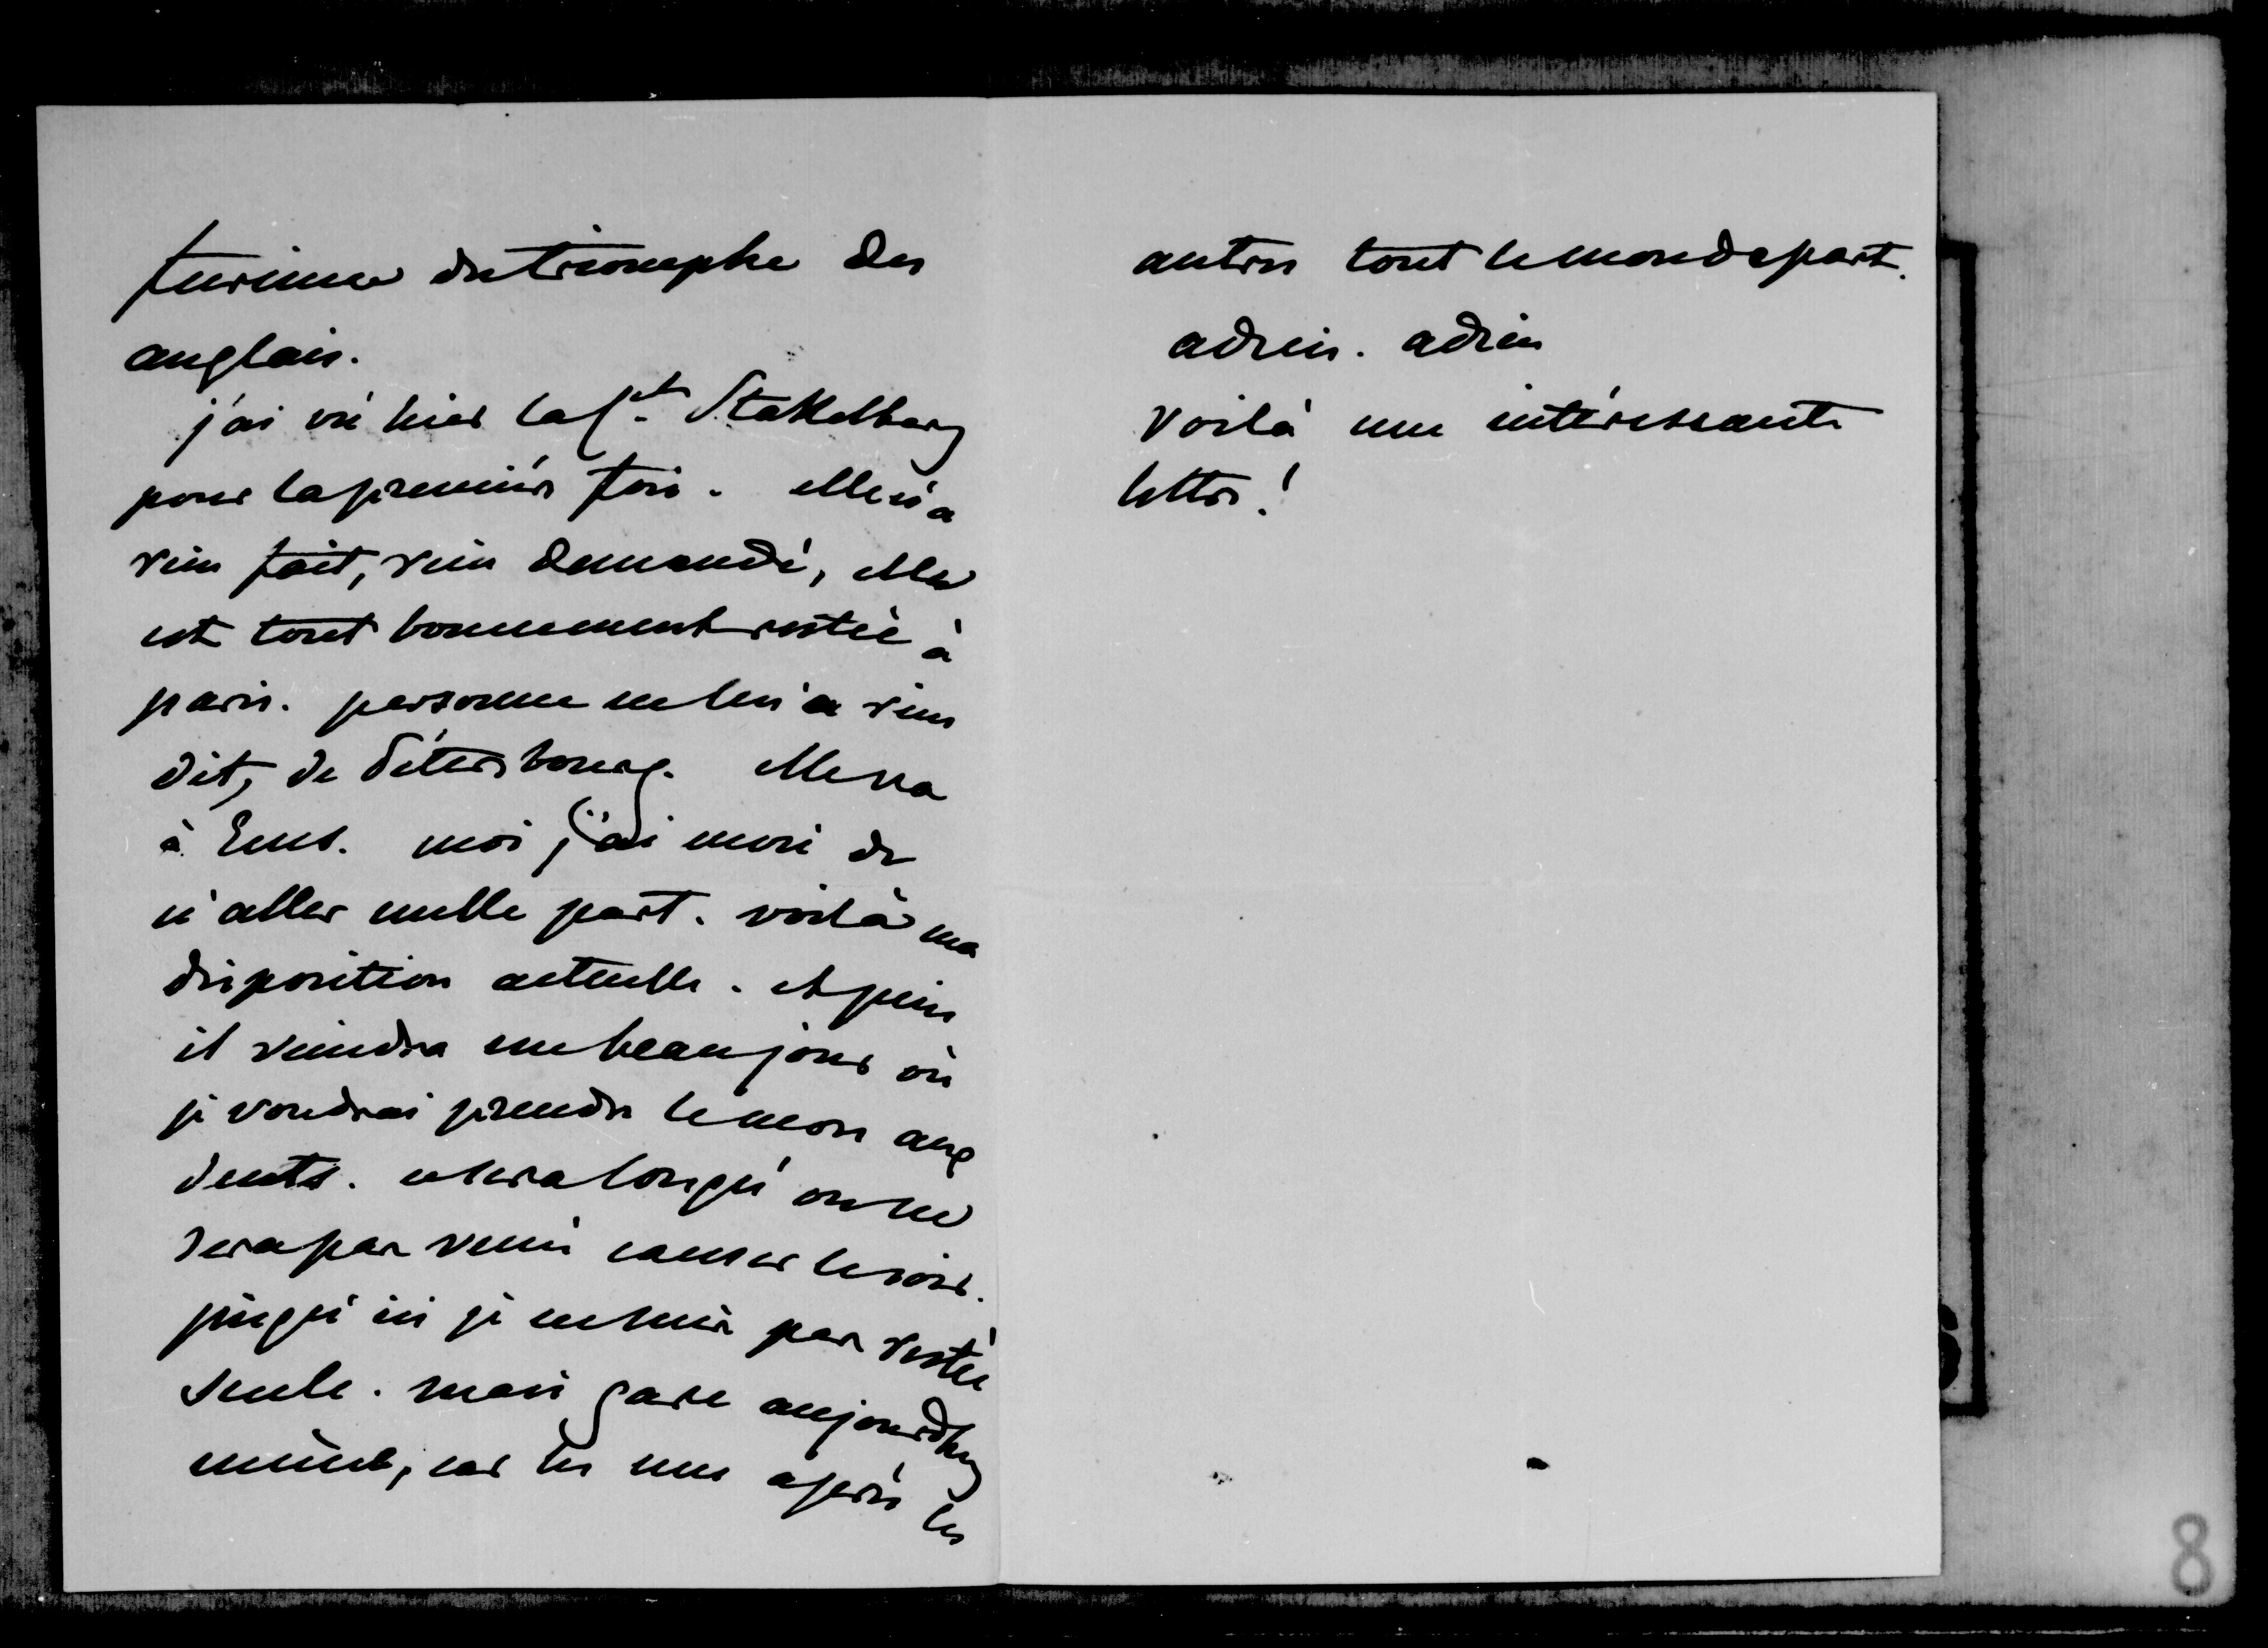 furieux du triomphe des
anglais.
j'ai vu hier la Cte Stakelberg
pour la première fois. elle n'a
rien fait, rien demandé, elle
est tout bonnement restée à
paris. personne ne lui a rien
dit, de Pétersbourg. elle va
à Ems. moi j'ai envie de
n'aller nulle part. voilà ma
disposition actuelle. et puis
il viendra un beau jour où
je voudrai prendre le mors aux
dents. ce sera lorsqu'on ne
sera pas venu causer le soir.
jusqu'ici je ne suis pas restée
seule. mais gare aujourd'hui
même, car les uns après les
autres tout le monde part.
adieu. adieu
voilà une intéressante
lettre!
8